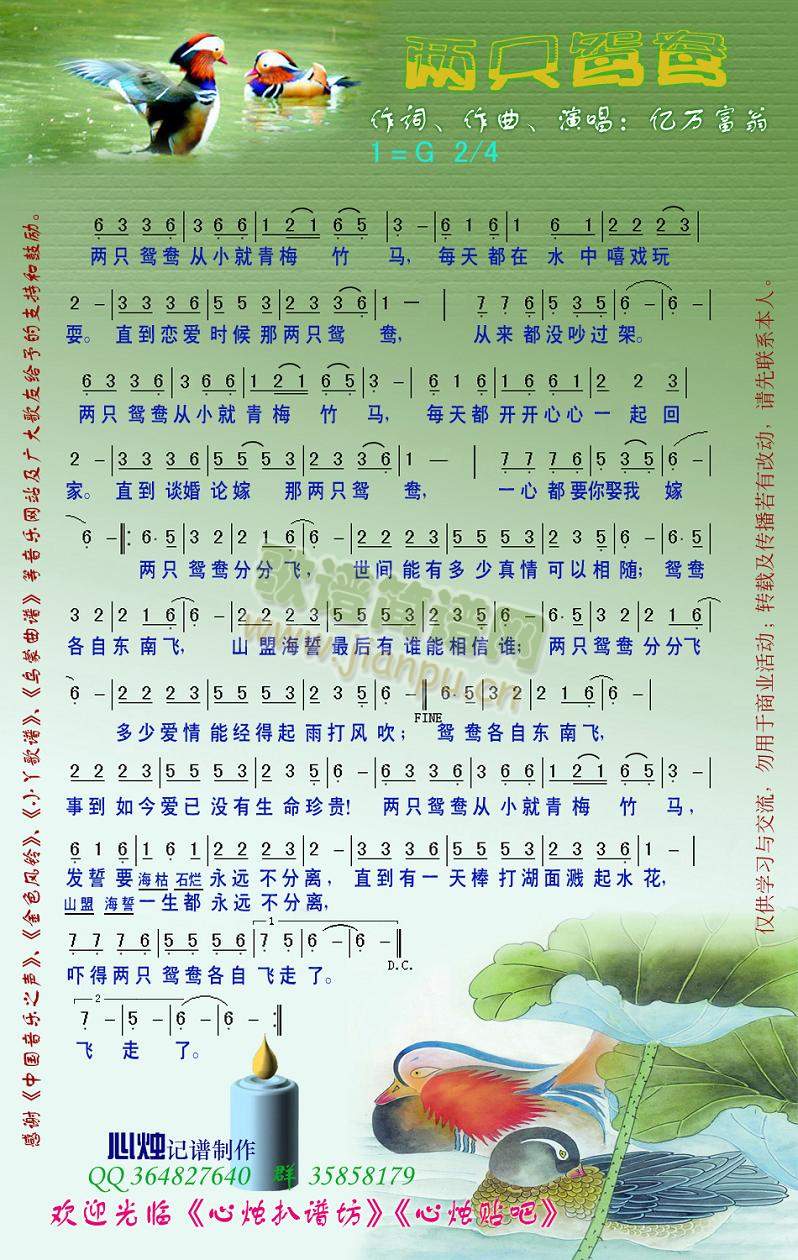 两只鸳鸯
作词、作曲、演唱：亿万富翁
1=G 2/4
6 3 3 6|3 6 6|1 2 1 6 5|3 -|6 1 6|1 6 1|2 2 2 3|
两只鸳鸯从小就青梅竹马，每天都在水中嘻戏玩
2 -|3 3 3 6|5 5 3|2 3 3 6|1 —|7 7 6|5 3 5|6 -|6 -|
耍。直到恋爱时候那两只鸳鸯，从来都没吵过架。
6 3 3 6|3 6 6|1 2 1 6 5|3 -|6 1 6|1 6 6 1|2 2 3|
两只鸳鸯从小就青梅竹马，每天都开开心心一起回
2 -|3 3 3 6|5 5 5 3|2 3 3 6|1 —|7 7 7 6|5 3 5|6
家。直到谈婚论嫁那两只鸳鸯，一心都要你娶我嫁
6 -‖:6· 5|3 2|2 1 6|6 -|2 2 2 3|5 5 5 3|2 2 2 3|6 -|6· 5|
两只鸳鸯分分飞，世间能有多少真情可以相随；鸳鸯
3 2|2 1 6|6 -|2 2 2 3|5 5 5 3|2 2 2 3|6 -|6· 5|3 2|2 1 6|
各自东南飞，山盟海誓最后有谁能相信谁；两只鸳鸯分分飞
6 -|2 2 2 3|5 5 5 3|2 2 2 3 5|6 -‖6· 5|3 2|2 1 6|6 -|
FINE
多少爱情能经得起雨打风吹；鸳鸯各自东南飞，
2 2 2 3|5 5 5 3|5 5 5 3|2 -|6 3 3 6|3 6 6|1 2 1|6 5|3 -|
事到如今爱已没有生命珍贵！两只鸳鸯从小就青梅竹马，
6 1 6|1 6 1|2 2 2 3|2 -|3 3 3 6|5 5 5 3|2 2 2 3|1 -|
发誓要海枯石烂永远不分离，直到有一天棒打湖面溅起水花，
山盟海誓一生都永远不分离，
1
7 7 7 6|5 5 5 6|7 5|6 6 -‖
D.C.
吓得两只鸳鸯各自飞走了。
2
7 -|5 -|6 -|6 -:‖
飞走了。
心烛记谱制作
QQ 364827640 群 35858179
欢迎光临《心烛扒谱坊》《心烛贴吧》
感谢《中国音乐之声》、《金色风铃》、《小丫歌谱》、《乌蒙曲谱》等音乐网站及广大歌友给予的支持和鼓励。
仅供学习与交流，勿用于商业活动；转载及传播若有改动，请先联系本人。
歌谱简谱网
www.jianpu.cn